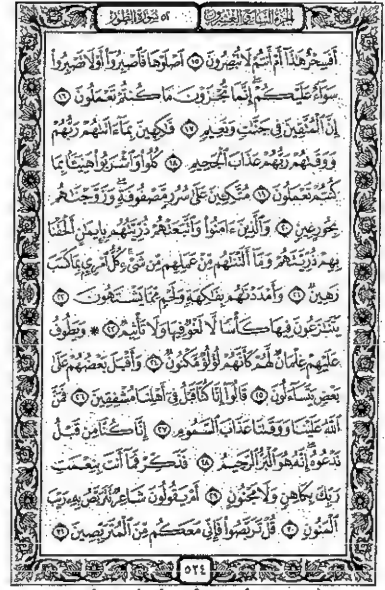 الجزء السابع والعشرون ٥٢ سورة الطور
أَفَسِحْرٌ هَٰذَا أَمْ أَنتُمْ لَا تُبْصِرُونَ ١٥ اصْلَوْهَا فَاصْبِرُوا أَوْ لَا تَصْبِرُوا
سَوَاءٌ عَلَيْكُمْ إِنَّمَا تُجْزَوْنَ مَا كُنتُمْ تَعْمَلُونَ ١٦
إِنَّ الْمُتَّقِينَ فِي جَنَّاتٍ وَنَعِيمٍ ١٧ فَاكِهِينَ بِمَا آتَاهُمْ رَبُّهُمْ
وَوَقَاهُمْ رَبُّهُمْ عَذَابَ الْجَحِيمِ ١٨ كُلُوا وَاشْرَبُوا هَنِيئًا بِمَا
كُنتُمْ تَعْمَلُونَ ١٩ مُتَّكِئِينَ عَلَىٰ سُرُرٍ مَّصْفُوفَةٍ وَزَوَّجْنَاهُم
بِحُورٍ عِينٍ ٢٠ وَالَّذِينَ آمَنُوا وَاتَّبَعَتْهُمْ ذُرِّيَّتُهُم بِإِيمَانٍ أَلْحَقْنَا
بِهِمْ ذُرِّيَّتَهُمْ وَمَا أَلَتْنَاهُم مِّنْ عَمَلِهِم مِّن شَيْءٍ كُلُّ امْرِئٍ بِمَا كَسَبَ
رَهِينٌ ٢١ وَأَمْدَدْنَاهُم بِفَاكِهَةٍ وَلَحْمٍ مِّمَّا يَشْتَهُونَ ٢٢
يَتَنَازَعُونَ فِيهَا كَأْسًا لَّا لَغْوٌ فِيهَا وَلَا تَأْثِيمٌ ٢٣ * وَيَطُوفُ
عَلَيْهِمْ غِلْمَانٌ لَّهُمْ كَأَنَّهُمْ لُؤْلُؤٌ مَّكْنُونٌ ٢٤ وَأَقْبَلَ بَعْضُهُمْ عَلَىٰ
بَعْضٍ يَتَسَاءَلُونَ ٢٥ قَالُوا إِنَّا كُنَّا قَبْلُ فِي أَهْلِنَا مُشْفِقِينَ ٢٦ فَمَنَّ
اللَّهُ عَلَيْنَا وَوَقَانَا عَذَابَ السَّمُومِ ٢٧ إِنَّا كُنَّا مِن قَبْلُ
نَدْعُوهُ إِنَّهُ هُوَ الْبَرُّ الرَّحِيمُ ٢٨ فَذَكِّرْ فَمَا أَنتَ بِنِعْمَتِ
رَبِّكَ بِكَاهِنٍ وَلَا مَجْنُونٍ ٢٩ أَمْ يَقُولُونَ شَاعِرٌ نَّتَرَبَّصُ بِهِ رَيْبَ
الْمَنُونِ ٣٠ قُلْ تَرَبَّصُوا فَإِنِّي مَعَكُم مِّنَ الْمُتَرَبِّصِينَ ٣١
٥٢٤